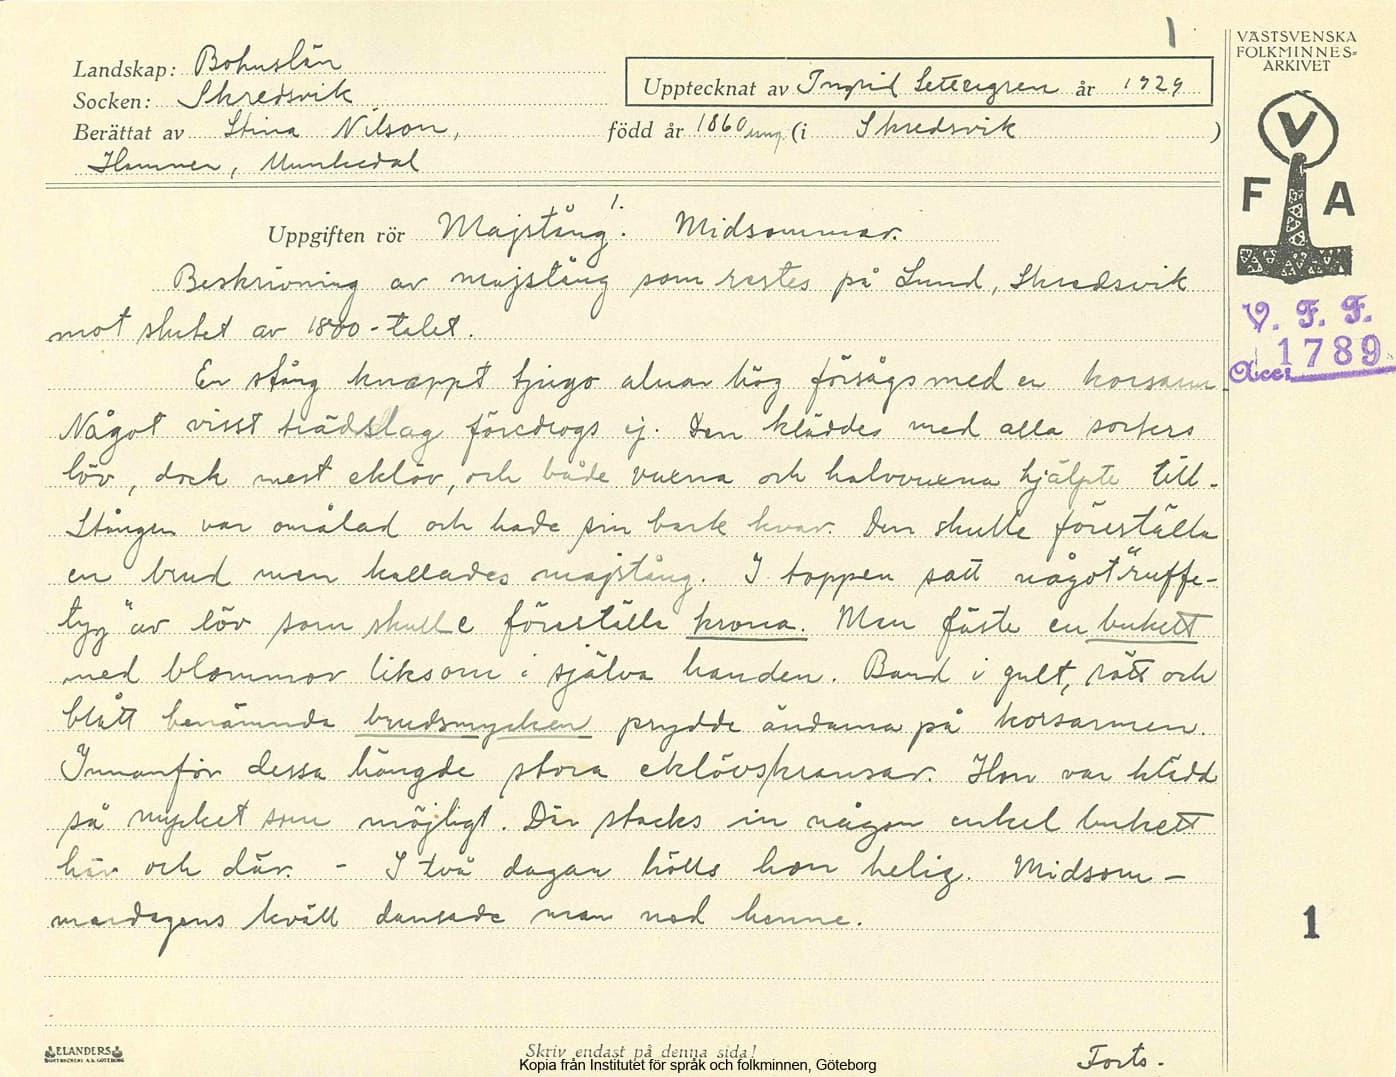 1
VÄSTSVENSKA
FOLKMINNES-
ARKIVET
V
F A
V. F. F.
Acc. 1789
Landskap: Bohuslän
Socken: Skredsvik
Upptecknat av Ingrid år 1929
Berättat av Stina Nilson, född år 1860 ung. (i Skredsvik )
Hamnen, Munkedal
Uppgiften rör Majstång! Midsommar.
Beskrivning av majstång som restes på Lund, Skredsvik
mot slutet av 1800-talet.
En stång knappt tjugo alnar hög försågs med en korsarm.
Något visst trädslag föredrogs ej. Den kläddes med alla sorters
löv, dock mest eklöv, och både vuxna och halvvuxna hjälpte till.
Stången var omålad och hade sin bark kvar. Den skulle föreställa
en brud men kallades majstång. I toppen satt något "ruffe-
tyg" av löv som skulle föreställa krona. Man fäste en bukett
med blommor liksom i själva handen. Band i gult, rött och
blått benämnda brudsmycken prydde ändarna på korsarmen.
Innanför dessa hängde stora eklövskransar. Hon var klädd
så mycket som möjligt. Där stacks in någon enkel bukett
här och där. - I två dagar hölls hon helig. Midsom-
mardagens kväll dansade man ned henne.
1
ELANDERS
BOKTRYCKERI A.B. GÖTEBORG
Skriv endast på denna sida!
Forts.
Kopia från Institutet för språk och folkminnen, Göteborg